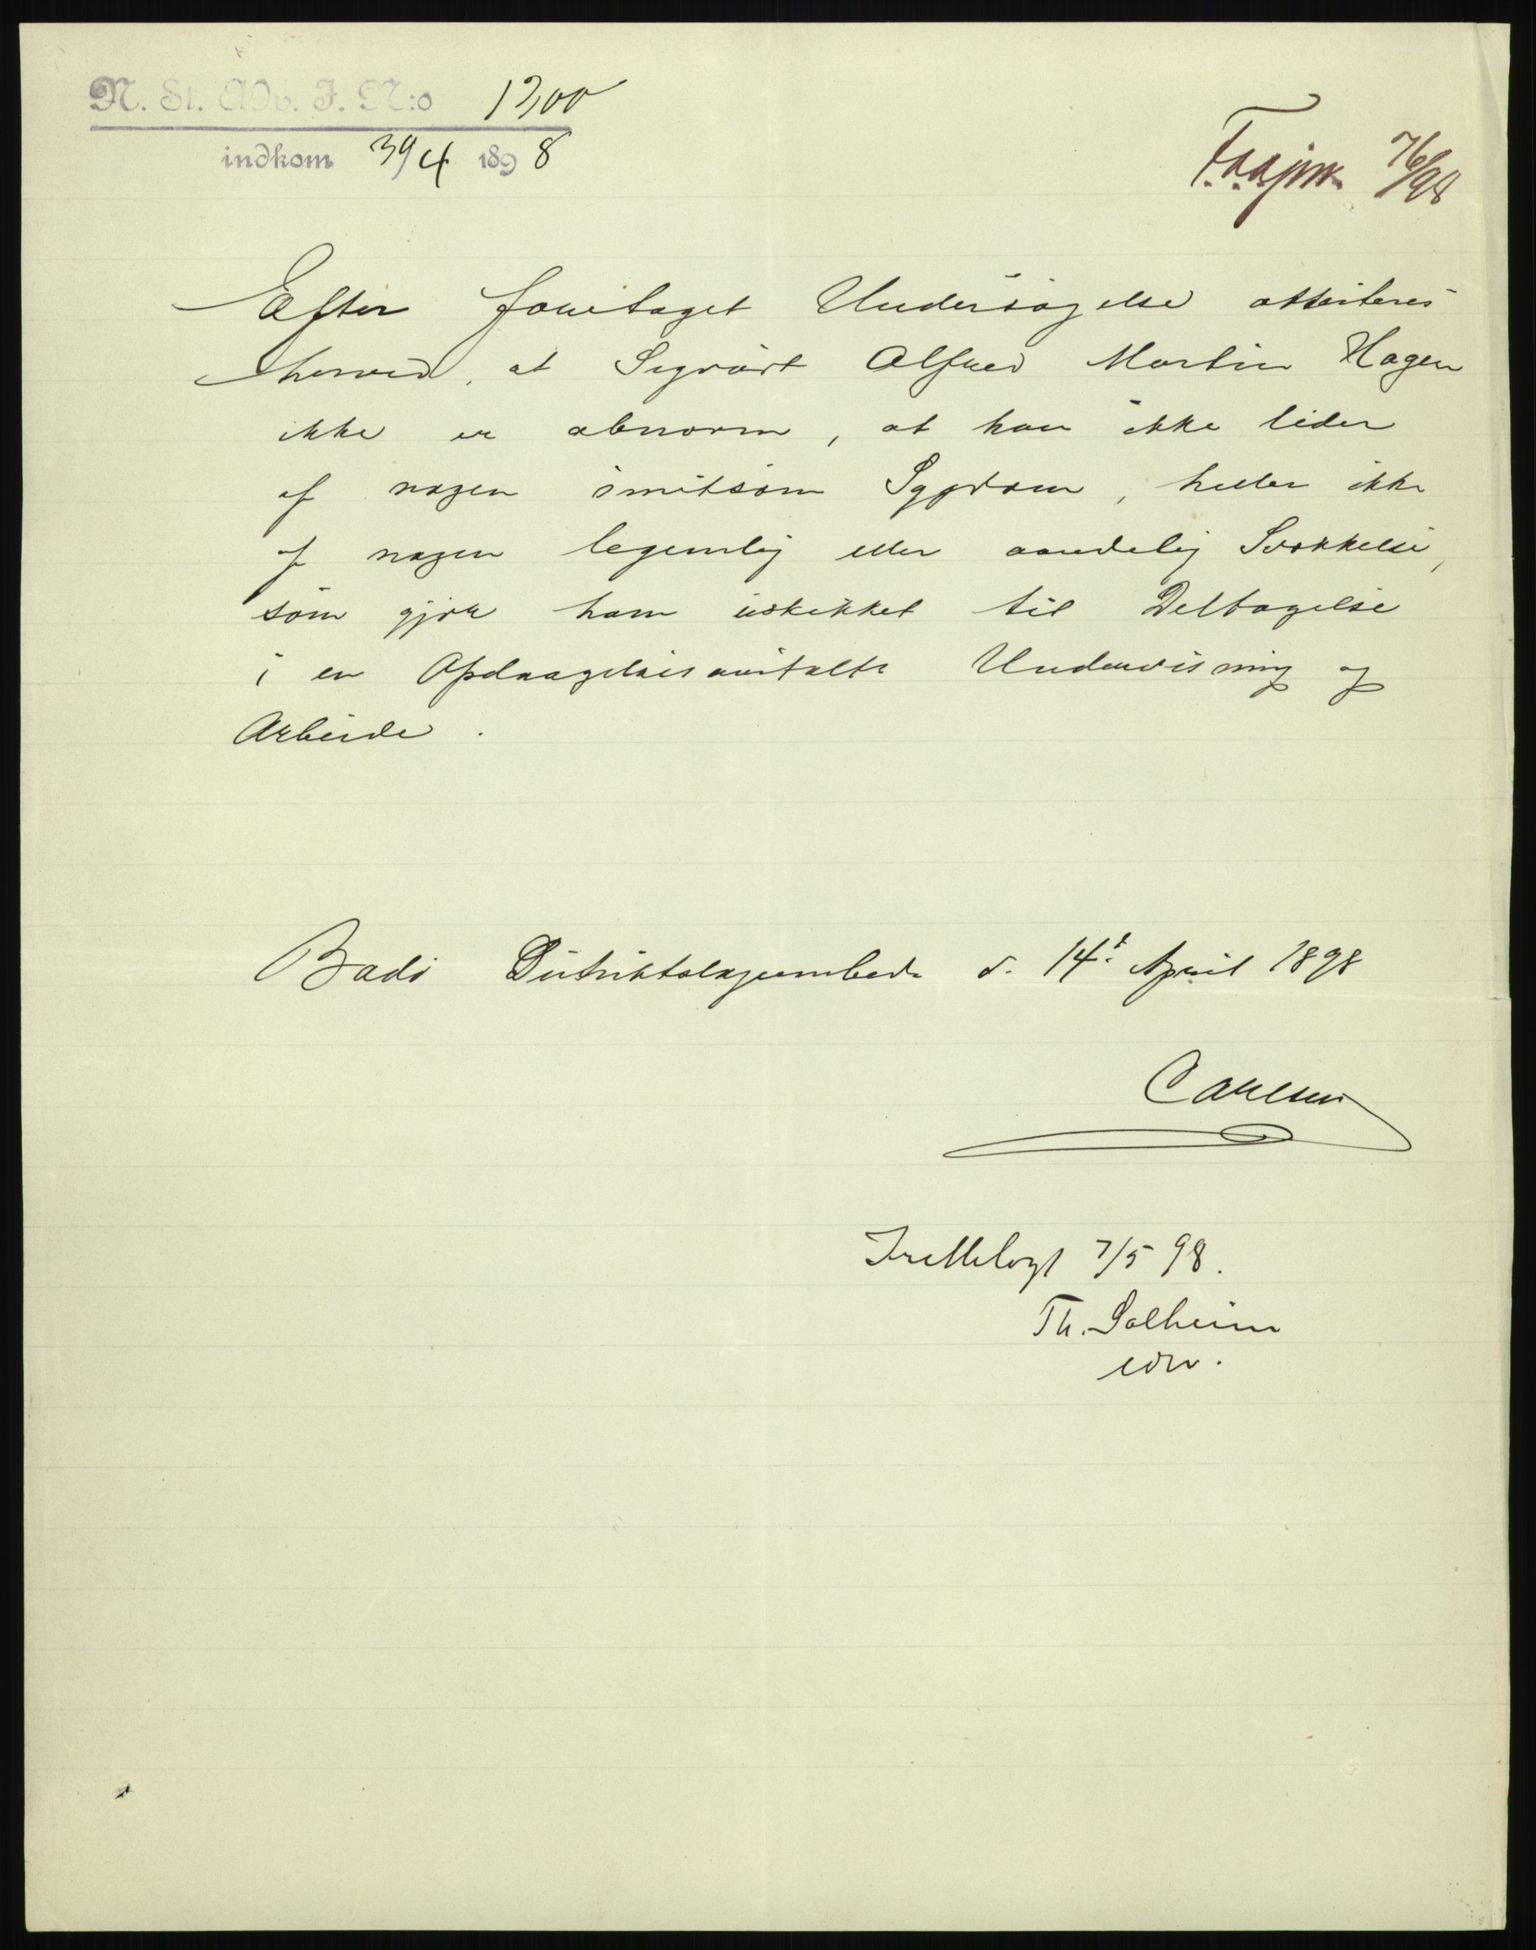 N. St. Adv. J. N:o 1300
indkom 39/4 1898
76/98
Efter foretaget Undersøgelse attesteres
herved, at Sigvart Alfred Martin Hagen
ikke er abnorm, at han ikke lider
af nogen smitsom Sygdom, heller ikke
af nogen legemlig eller aandelig Svækkelse,
som gjør ham uskikket til Deltagelse
i en Opdragelsesanstalts Undervisning og
Arbeide.
Bodø Distriktslægeembede d. 14de April 1898
Carlsen
Fremlagt 7/5 98.
Th. Solheim
edv.